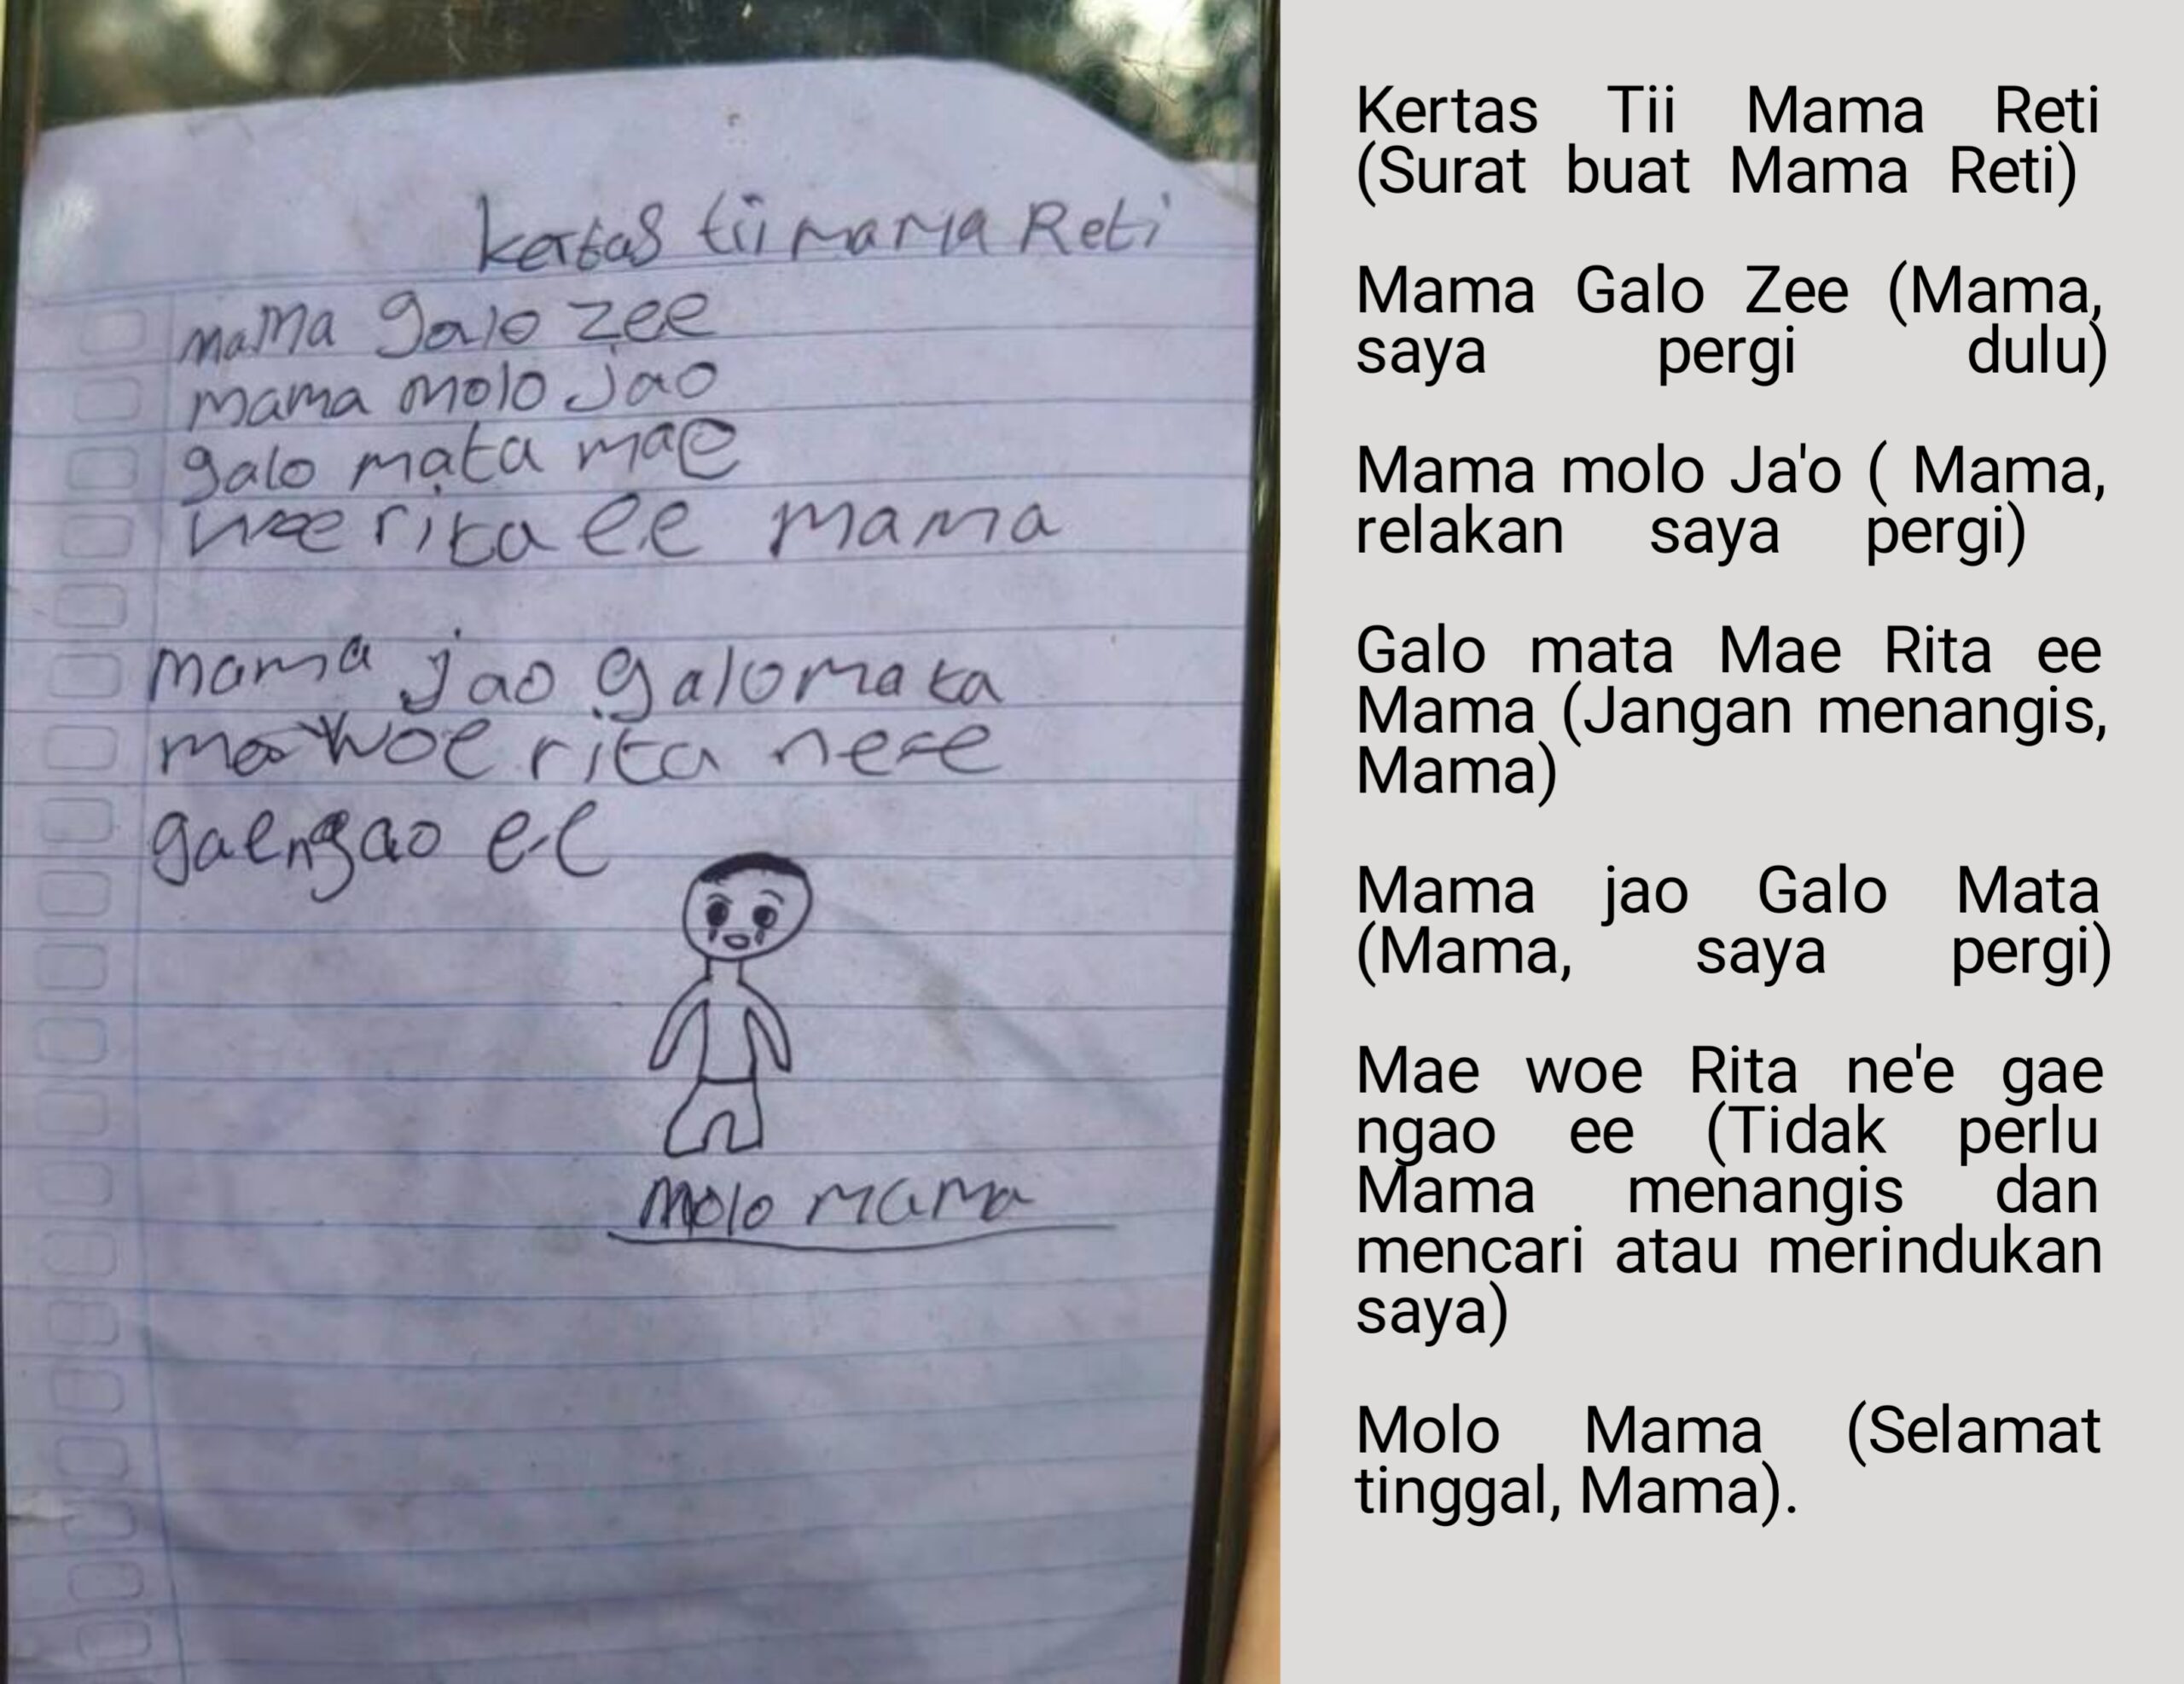 kertas tii mama Reti
mama galo zee
mama molo jao
galo mata mae
woe rita ee mama
mama jao galo mata
mae woe rita nee
gaengao ee
molo mama
Kertas Tii Mama Reti
(Surat buat Mama Reti)
Mama Galo Zee (Mama,
saya pergi dulu)
Mama molo Ja'o ( Mama,
relakan saya pergi)
Galo mata Mae Rita ee
Mama (Jangan menangis,
Mama)
Mama jao Galo Mata
(Mama, saya pergi)
Mae woe Rita ne'e gae
ngao ee (Tidak perlu
Mama menangis dan
mencari atau merindukan
saya)
Molo Mama (Selamat
tinggal, Mama).